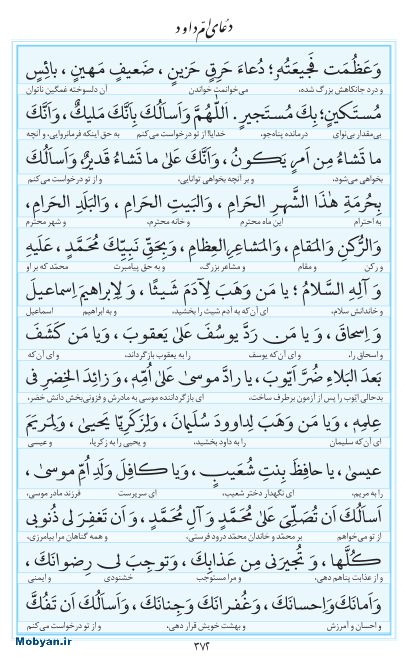 دعای امّ داود
وَعَظُمَت فَجیعَتُهُ؛ دُعاءَ حَرِقٍ حَزینٍ ، ضَعیفٍ مَهینٍ ، بائِسٍ
و درد جانکاهش بزرگ شده، می‌خوانمت خواندن آن دلسوخته غمگین ناتوان
مُستَکینٍ؛ بِكَ مُستَجیرٍ . اَللّٰهُمَّ وَاَساَلُكَ بِاَنَّكَ مَلیكٌ، وَاَنَّكَ
بی‌مقدار بی‌نوای درمانده پناه‌جو، خدایا! از تو درخواست می‌کنم به حق اینکه فرمانروایی، و آنچه
ما تَشاءُ مِن اَمرٍ یَکونُ، وَاَنَّكَ عَلیٰ ما تَشاءُ قَدیرٌ، وَاَساَلُكَ
بخواهی می‌شود، و بر آنچه بخواهی توانایی، و از تو درخواست می‌کنم
بِحُرمَةِ هٰذَا الشَّهرِ الحَرامِ ، وَالبَیتِ الحَرامِ ، وَالبَلَدِ الحَرامِ،
به احترام این ماه محترم و خانه محترم، و شهر محترم
وَالرُّکنِ وَالمَقامِ ، وَالمَشاعِرِ العِظامِ ، وَبِحَقِّ نَبِیِّكَ مُحَمَّدٍ ، عَلَیهِ
و رکن و مقام و مشاعر بزرگ، و به حق پیامبرت محمّد که بر او
وَ آلِهِ السَّلامُ ؛ یا مَن وَهَبَ لِآدَمَ شَیثًا ، وَ لِاِبراهیمَ اِسماعیلَ
و خاندانش سلام، ای آن‌که به آدم شیث را بخشید، و به ابراهیم اسماعیل
وَ اِسحاقَ ، وَ یا مَن رَدَّ یوسُفَ عَلیٰ یَعقوبَ ، وَیا مَن کَشَفَ
و اسحاق را، و ای آن‌که یوسف را به یعقوب بازگرداند، و ای آن‌که
بَعدَ البَلاءِ ضُرَّ اَیّوبَ ، یا رادَّ موسیٰ عَلیٰ اُمِّهِ ، وَ زائِدَ الخِضرِ فی
بدحالی ایّوب را پس از آزمون برطرف ساخت، ای بازگرداننده موسی به مادرش و فزونی‌بخش دانش خضر،
عِلمِهِ ، وَیا مَن وَهَبَ لِداوودَ سُلَیمانَ ، وَلِزَکَرِیّا یَحییٰ ، وَلِمَریَمَ
ای آن‌که سلیمان را به داود بخشید، و یحیی را به زکریا، و عیسی
عیسیٰ ، یا حافِظَ بِنتِ شُعَیبٍ ، وَیا کافِلَ وَلَدِ اُمِّ موسیٰ ،
را به مریم، ای نگهدار دختر شعیب، ای سرپرست فرزند مادر موسی،
اَساَلُكَ اَن تُصَلِّیَ عَلیٰ مُحَمَّدٍ وَ آلِ مُحَمَّدٍ ، وَ اَن تَغفِرَ لی ذُنوبی
از تو می‌خواهم بر محمّد و خاندان محمّد درود فرستی، و همه گناهان مرا بیامرزی،
کُلَّها ، وَ تُجیرَنی مِن عَذابِكَ ، وَتوجِبَ لی رِضوانَكَ ،
و از عذابت پناهم دهی، و مرا مستوجب خشنودی و ایمنی
وَاَمانَكَ وَاِحسانَكَ ، وَغُفرانَكَ وَجِنانَكَ ، وَاَساَلُكَ اَن تَفُكَّ
و احسان و آمرزش و بهشت خویش قرار دهی، و از تو درخواست می‌کنم
۳۷۲
Mobyan.ir